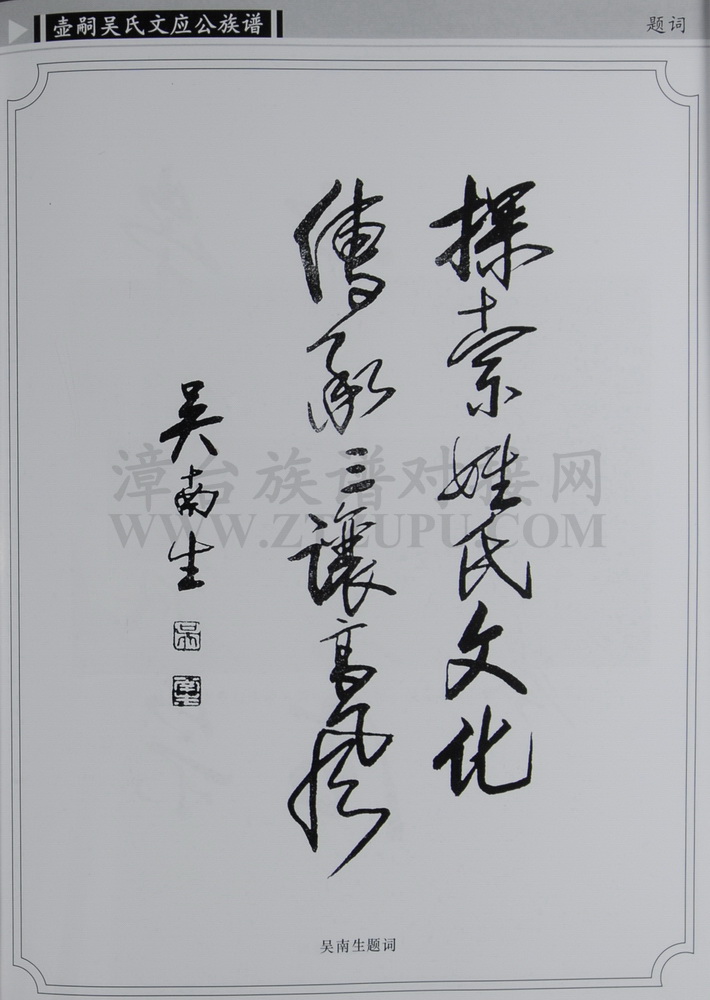 壶嗣吴氏文应公族谱
题词
探索姓氏文化
傳承三讓高风
吴南生
吴
南生
漳台族谱对接网
WWW.ZTZUPU.COM
吴南生题词